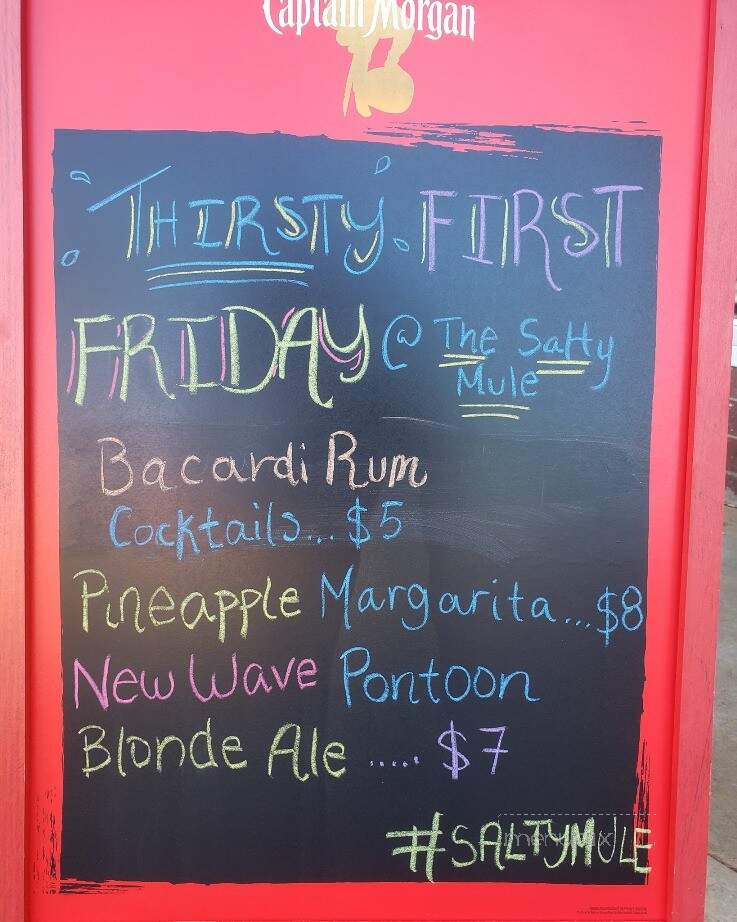 Captain Morgan
THIRSTY FIRST
FRIDAY @ The Salty
Mule
Bacardi Rum
Cocktails... $5
Pineapple Margarita...$8
New Wave Pontoon
Blonde Ale ..... $7
#SALTYMULE
menupix